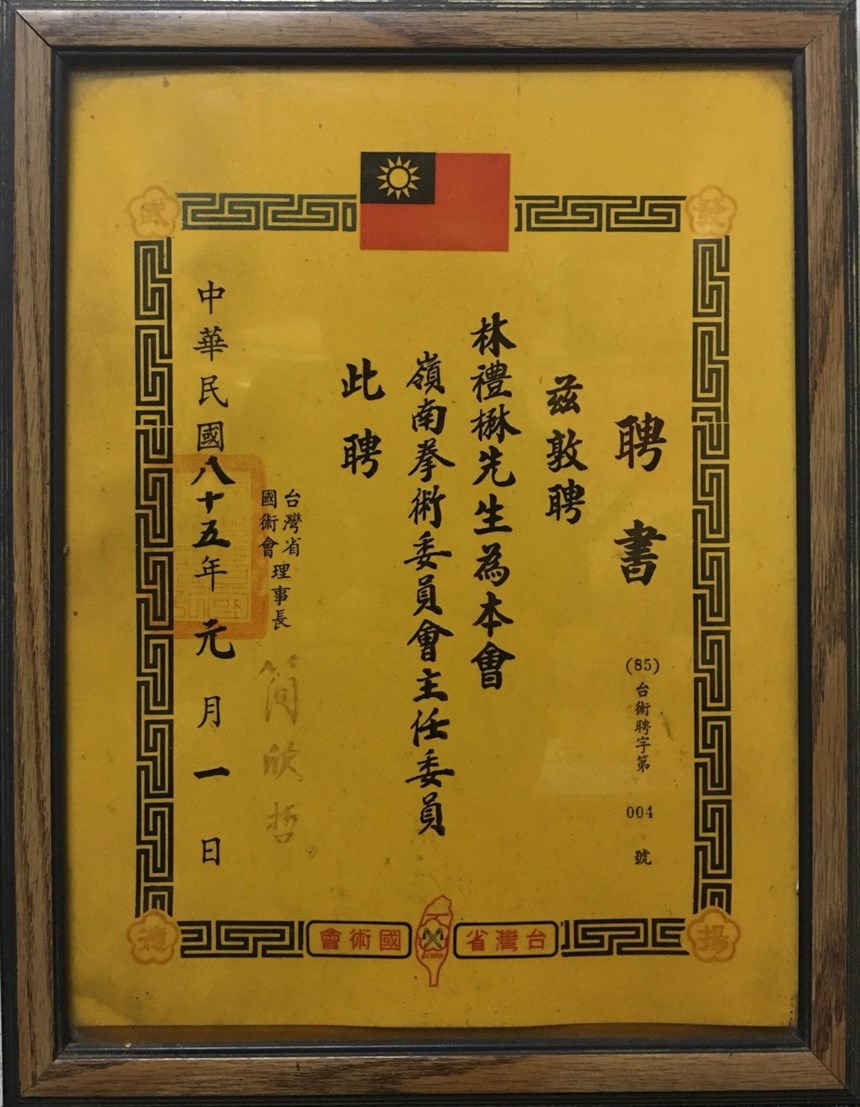 聘書
(85)台術聘字第 004 號
茲敦聘
林禮楙先生為本會
嶺南拳術委員會主任委員
此聘
台灣省
國術會
理事長
简欣哲
中華民國八十五年元月一日
發
揚
武
德
台灣省
國術會